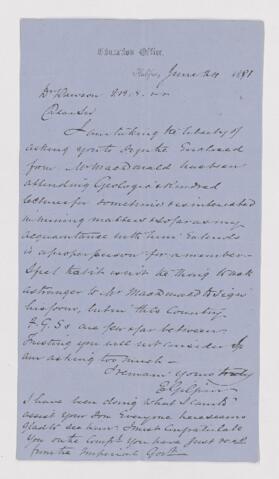 Education Office,
Halifax, June 24 1881
Dr Dawson
Dear Sir
I am taking the liberty of
asking you to sign the Enclosed
from Mr MacDonald has been
attending Geological & kindred
lectures for sometime & is interested
in mining matters & so far as my
acquaintance with him Extends
is a proper person for a member.
I feel that it isn't the thing to ask
a stranger to Mr MacDonald to sign
his form, but in this Country
F.G.S's are few & far between.
Trusting you will not consider I
am asking too much
I remain yours truly
E Gilpin
I have been doing what I can to
assist your Son Everyone here seems
glad to see him. I must Congratulate
You on the Compt You have just recd
from the Imperial Govt